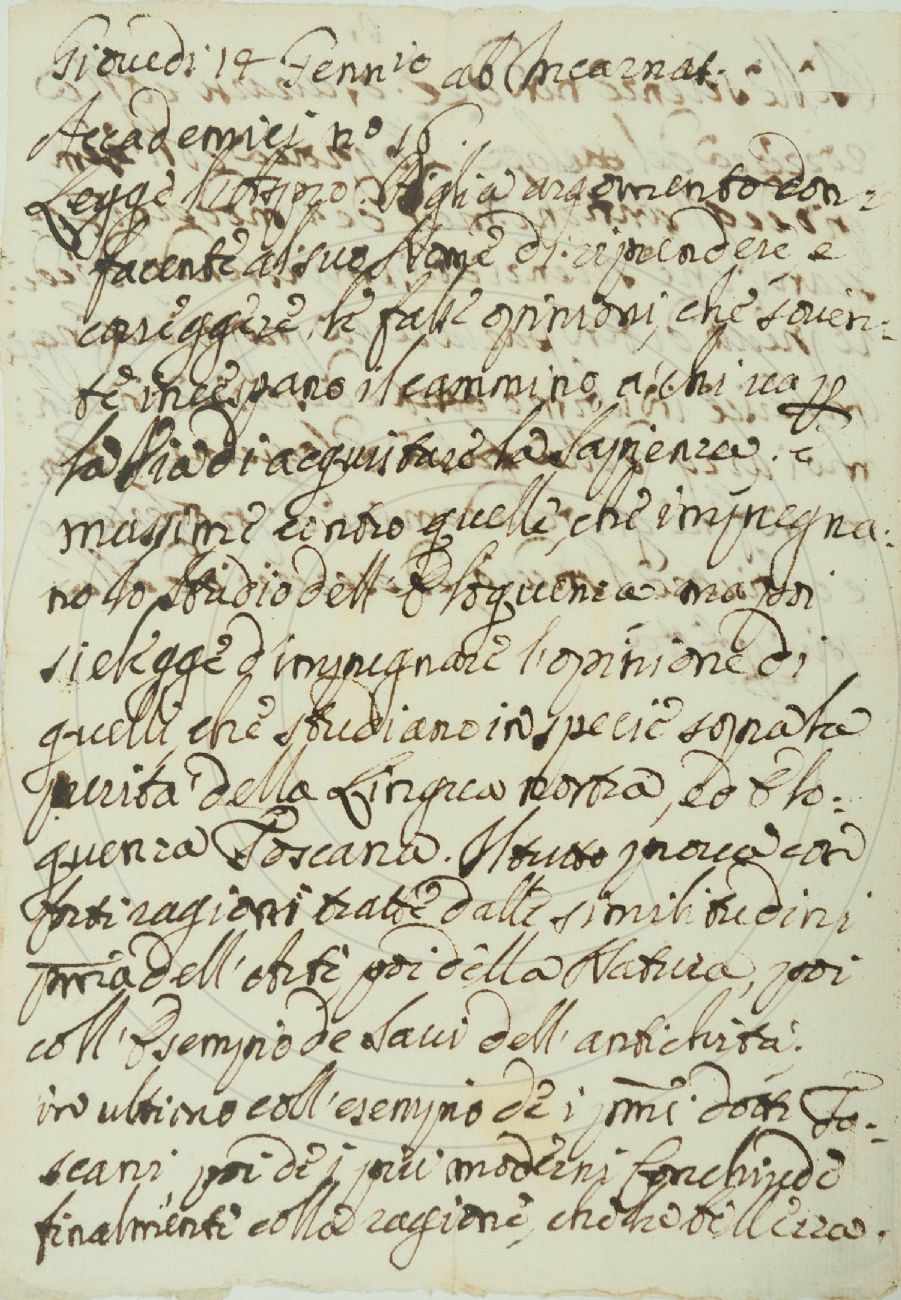 Giovedi 14 Gennio ab Incarnat.
Accademici n.º 16.
Legge l'Aspro. Piglia argomento con-
facente al suo Nome di riprendere e
coreggere le false opinioni, che soven-
te incespano il cammino, a chi va p
la Via di acquistare la Sapienza. e
massime contro quelle, che impregna-
no lo Studio dell'Eloquenza ma poi
si elegge d'impugnare l'opinione di
quelli, che studiano in specie sopra la
purità della Lingua nostra, ed Elo-
quenza Toscana. Il tutto prova con
forti ragioni tratte dalle similitudini
pma dell'Arte poi della Natura, poi
coll'Esempio de Savi dell'antichità.
in ultimo coll'esempio de i pmi dotti To-
scani, poi de i più moderni Conchiude
finalmente colla ragione, che la bellezza.